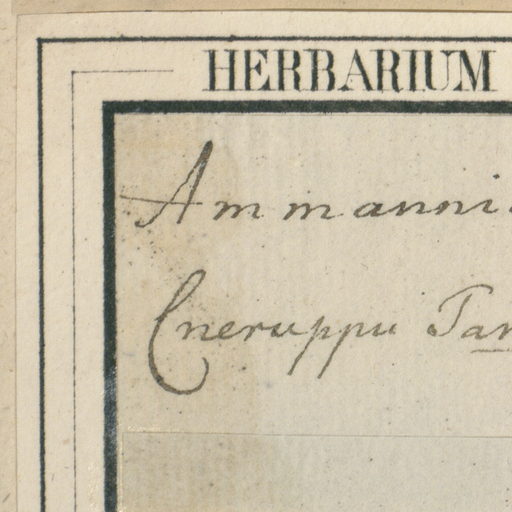 HERBARIUM
Ammanni
Cneruppu Tam